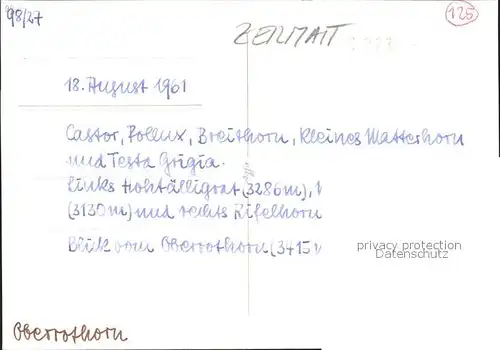 98/27
ZERMATT
125
18. August 1961
Castor, Pollux, Breithorn, Kleines Matterhorn
und Testa Grigia.
Links Hohtälligrat (3286m),
(3130m) und rechts Rifelhorn
Blick vom Oberrothorn (3415
privacy protection
Datenschutz
Oberrothorn